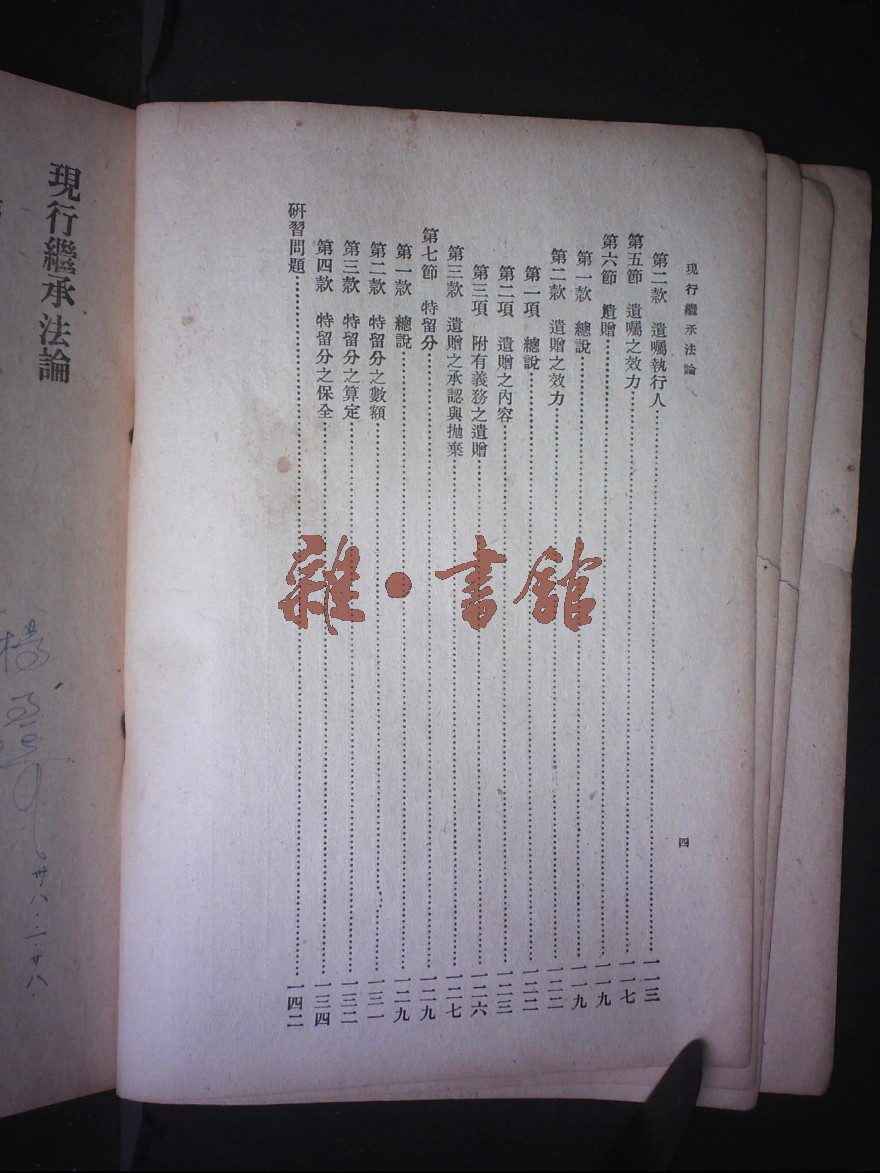 現行繼承法論
四
第二款 遺囑執行人……一一三
第五節 遺囑之效力……一一七
第六節 遺贈……一一九
第一款 總說……一一九
第二款 遺贈之效力……一二二
第一項 總說……一二二
第二項 遺贈之內容……一二三
第三項 附有義務之遺贈……一二六
第三款 遺贈之承認與拋棄……一二七
第七節 特留分……一二九
第一款 總說……一二九
第二款 特留分之數額……一三一
第三款 特留分之算定……一三二
第四款 特留分之保全……一三四
研習問題……一四二
雜·書館
現行繼承法論
廿八·二·廿八·